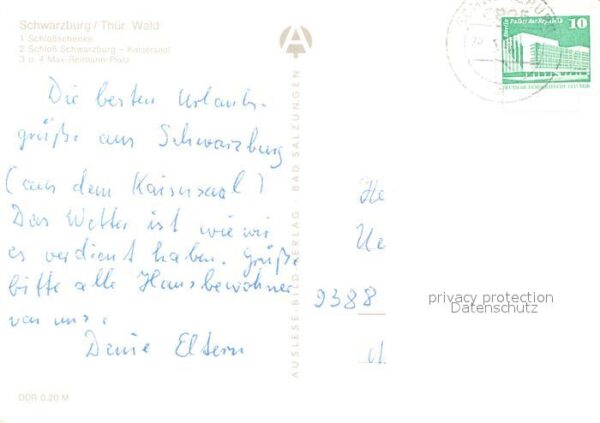 Schwarzburg / Thür. Wald
1 Schloßschenke
2 Schloß Schwarzburg – Kaisersaal
3 u. 4 Max-Reimann-Platz
Die besten Urlaubs-
grüße aus Schwarzburg
(aus dem Kaisersaal)
Das Wetter ist wie wir
es verdient haben. Grüße
bitte alle Hausbewohner
von uns.
Deine Eltern
DDR 0,20 M
AUSLESE-BILD-VERLAG - BAD SALZUNGEN
A
Berlin Palast der Republik
10
He
Ue
9388
privacy protection
Datenschutz